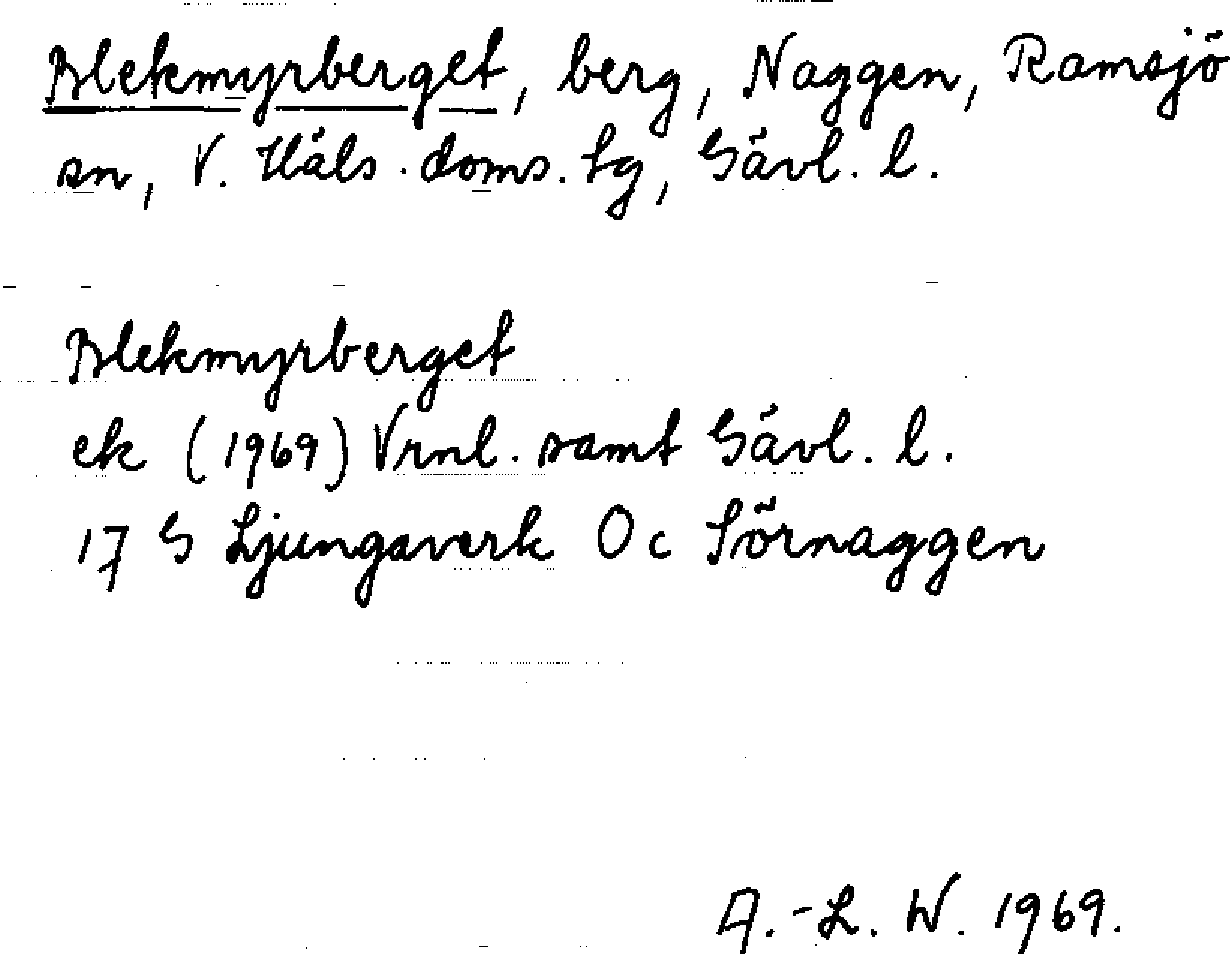 Blekmyrberget, berg, Naggen, Ramsjö
sn, V. Häls. doms. tg, Gävl. l.
Blekmyrberget
ek (1969) Vrnl. samt Gävl. l.
17 G Ljungaverk 0 c Sörnaggen
A.-L. W. 1969.